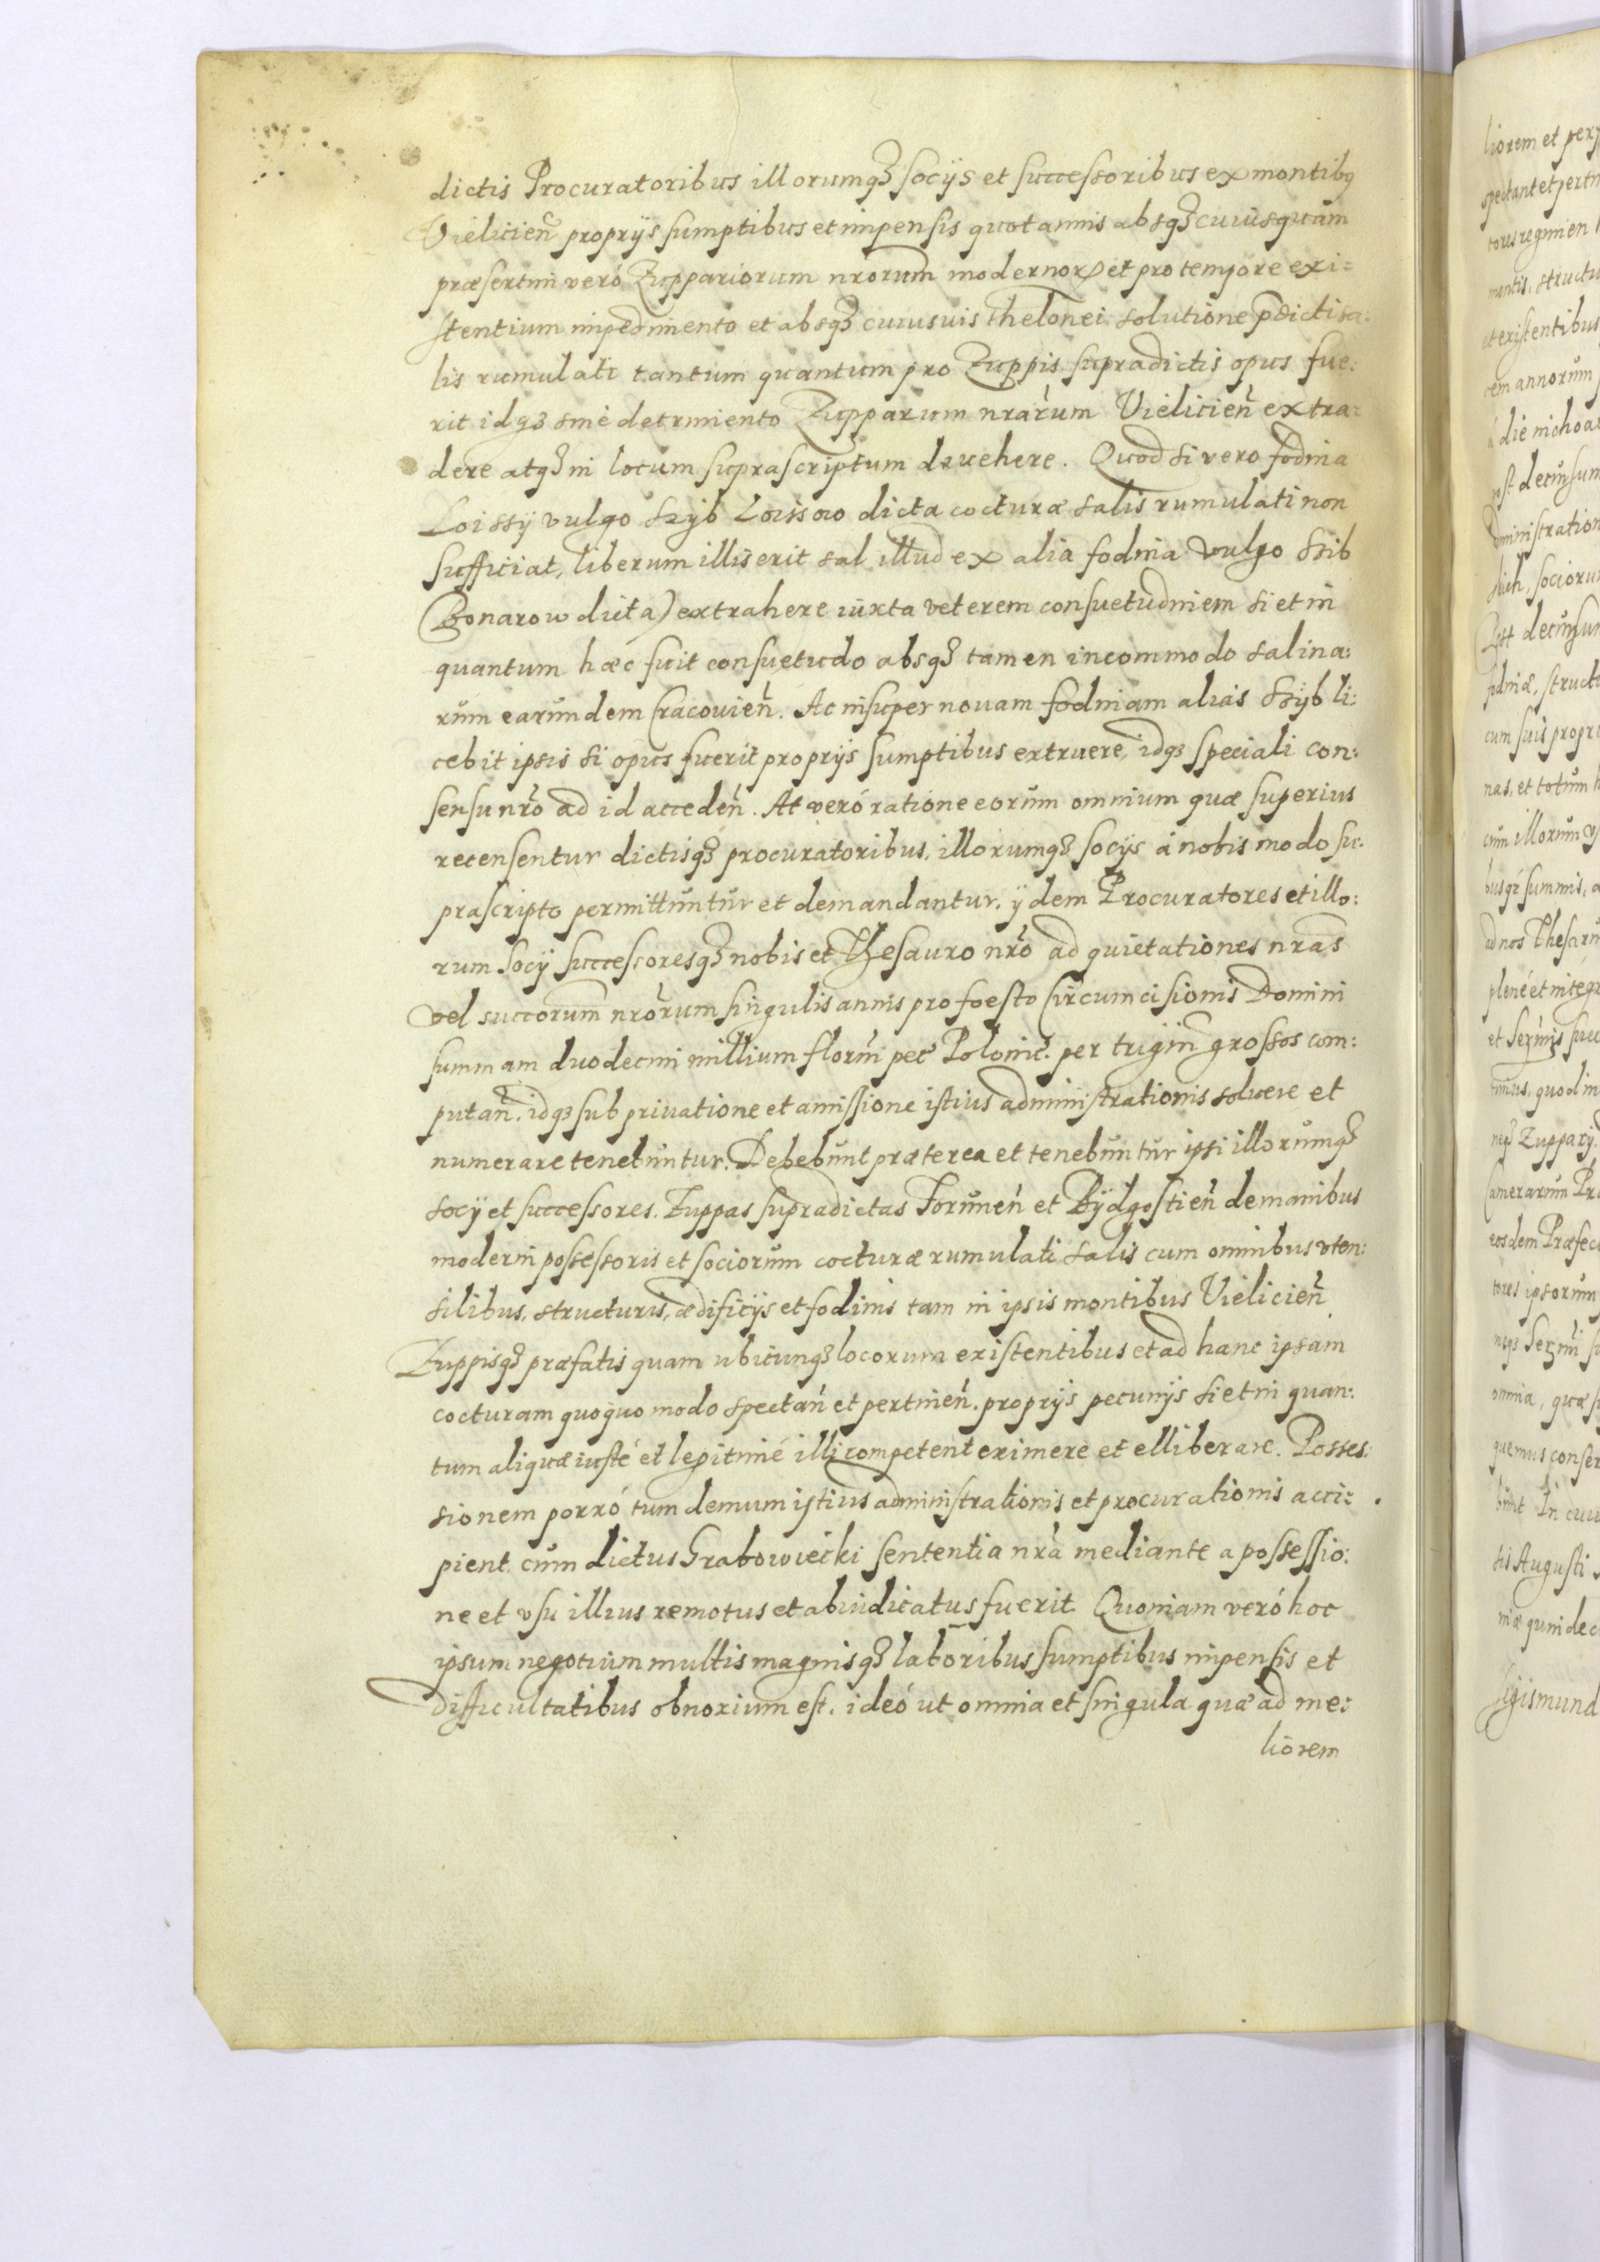 dictis Procuratoribus illorumqꝫ socijs et successoribus ex montibꝯ
Vielicien̄ proprijs sumptibus et impensis quotannis absqꝫ cuiusquam
præsertim veró Zuppariorum nr̄orum modernorꝝ et pro tempore exi=
stentium impedimento et absqꝫ cuiusuis Thelonei solutione p̄dicti sa:
lis rumulati tantum quantum pro Zuppis supradictis opus fue:
rit idqꝫ sine detrimento Zupparum nr̄arum Vielicien̄ extra=
dere atqꝫ in locum suprascriptum deuehere. Quod si vero fodina
Loissij vulgo szijb Loissow dicta cocturæ salis rumulati non
sufficiat, liberum illis erit sal illud ex alia fodina vulgo szib
Bonarow dicta) extrahere iuxta veterem consuetudinem si et in
quantum hæc fuit consuetudo absqꝫ tamen incommodo salina:
rum earundem Cracouien̄. Ac insuper nouam fodinam alias szijb li:
cebit ipsis si opus fuerit proprijs sumptibus extruere, idqꝫ speciali con:
sensu nr̄o ad id acceden̄. At veró ratione eorum omnium quæ superius
recensentur dictisqꝫ procuratoribus, illorumqꝫ socijs á nobis modo su:
prascripto permittuntur et demandantur, ijdem Procuratores et illo:
rum socij successoresqꝫ nobis et Thesauro nr̄o ad quietationes nr̄as
vel succorum̄ nr̄orum singulis annis pro foesto Circumcisionis Domini
summam duodecim millium florn̄ pec̄ Polonic̄. per trigin̄ grossos com:
putan̄. idqꝫ sub priuatione et amissione istius administrationis soluere et
numerare tenebuntur. Debebunt præterea et tenebuntur ipsi illorumqꝫ
socij et successores. Zuppas supradictas Torunen̄ et Bÿdgostien̄ de manibus
moderni possessoris et sociorum cocturæ rumulati salis cum omnibus vten:
silibus, structuris, ædificijs et fodinis tam in ipsis montibus Vielicien̄
Zuppisqꝫ præfatis quam ubicunqꝫ locorum existentibus et ad hanc ipsam
cocturam quoquo modo spectan̄ et pertinen̄. proprijs pecunijs si et in quan:
tum aliquæ iusté et legitimé illi competent eximere et elliberare. Posses:
sionem porró tum demum istius administrationis et procurationis acci=
pient. cum dictus Grabowiecki sententia nr̄a mediante a possessio:
ne et vsu illius remotus et abiudicatus fuerit. Quoniam veró hoc
ipsum negotium multis magnisqꝫ laboribus sumptibus impensis et
difficultatibus obnoxium est. ideó ut omnia et singula quæ ad me:
liorem